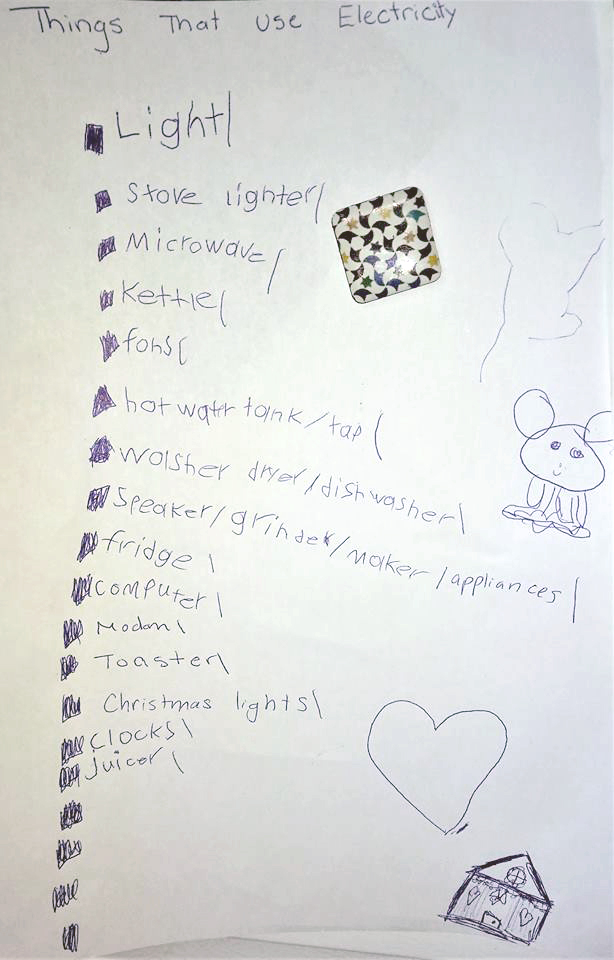 Things That use Electricity
Light/
Stove lighter/
Microwave/
Kettle/
fons/
hot watr tank/tap/
Wolsher dryer/dishwasher\
Speaker/grinder/maker/appliances/
fridge \
computer\
Modom\
Toaster\
Christmas lights\
Clocks\
Juicer \